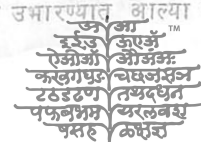 उभारण्यात आल्या
अ आ ™
इ ई उ ऊ ए ॲ
ऐ ओ ऑ औ अं अः
क ख ग घ ङ च छ ज झ ञ
ट ठ ड ढ ण त थ द ध न
प फ ब भ म य र ल व श
ष स ह ळ क्ष ज्ञ